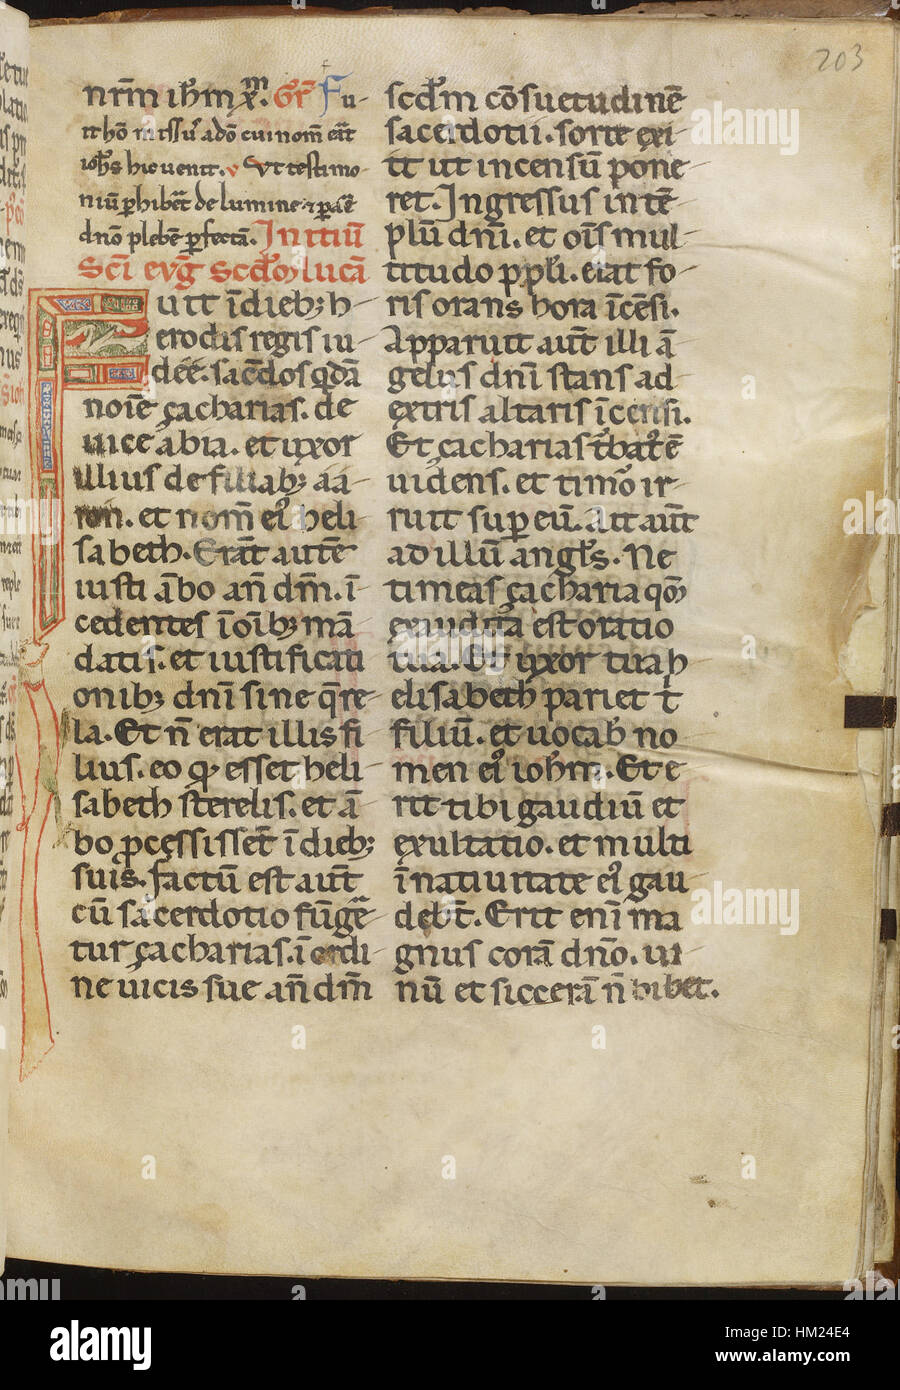 203
nr̄m ih̄m xm̄. Gr̄ Fu-
it hō missus adō cui nom̄ erāt
ioh̄s hic venit. v Vt testimo-
niū phibēt de lumine & parāe
dn̄o plebē perfectā. Initiū
Sc̄i evḡ Scd̄m lucā
Fuit ī dieb; h-
erodis regis iu-
dēe. sac̄dos qdā
noīe çacharias. de
uice abia. et uxor
illius de filiab; aa-
ron. et nom̄ ei' heli-
sabeth. Erāt autē
iusti ābo an̄ dm̄. ī-
cedentes ī oīb; mā
datis. et iustificati
onib; dn̄i sine qre-
la. Et n̄ erat illis fi
lius. eo q' esset heli-
sabeth sterelis. et ā-
bo pcessisset̄ ī dieb;
suis. factū est aut̄
cū sacerdotio fūgē-
tur çacharias. ī ordi-
ne uicis sue an̄ dm̄
scd̄m cōsuetudinē
sacerdotii. sorte exi-
it ut incensū pone-
ret. Ingressus in tē-
plū dn̄i. et oīs mul-
titudo ppl̄i. erat fo-
ris orans hora īcēsi.
Apparuit aut̄ illi ā
gelus dn̄i stans ad-
extris altaris īcensi.
Et çacharias t̄bat' ē
uidens. et timor ir-
ruit super eū. Ait aut̄
ad illū angl̄s. Ne
timeas çacharia qm̄
exaudita est oratio
tua. Et uxor tua h-
elisabeth pariet t̄
filiū. et uocab' no-
men ei' ioh̄m. Et e-
rit tibi gaudiū et
exultatio. et multi
ī natiuitate ei' gau-
debt̄. Erit enī ma
gnus corā dn̄o. ui-
nū et siccerā n̄ bibet.
alamy
Image ID: HM24E4
www.alamy.com